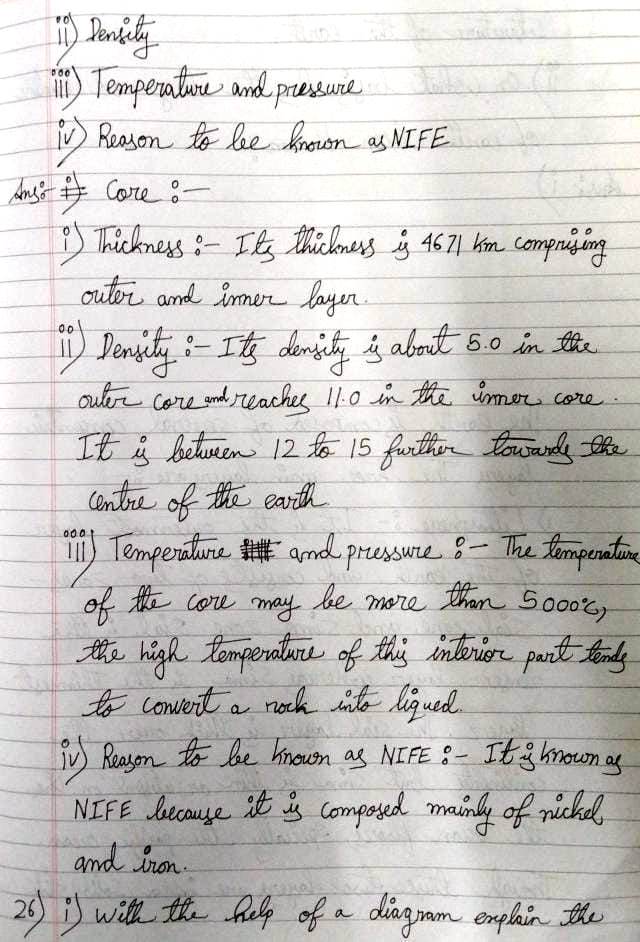 ii) Density
iii) Temperature and pressure
iv) Reason to be known as NIFE
Ans:- i) Core :-
i) Thickness :- Its thickness is 4671 km comprising
outer and inner layer.
ii) Density :- Its density is about 5.0 in the
outer core and reaches 11.0 in the inner core.
It is between 12 to 15 further towards the
centre of the earth.
iii) Temperature and pressure :- The temperature
of the core may be more than 5000°C,
the high temperature of this interior part tends
to convert a rock into liqued.
iv) Reason to be known as NIFE :- It is known as
NIFE because it is composed mainly of nickel
and iron.
26) i) With the help of a diagram explain the